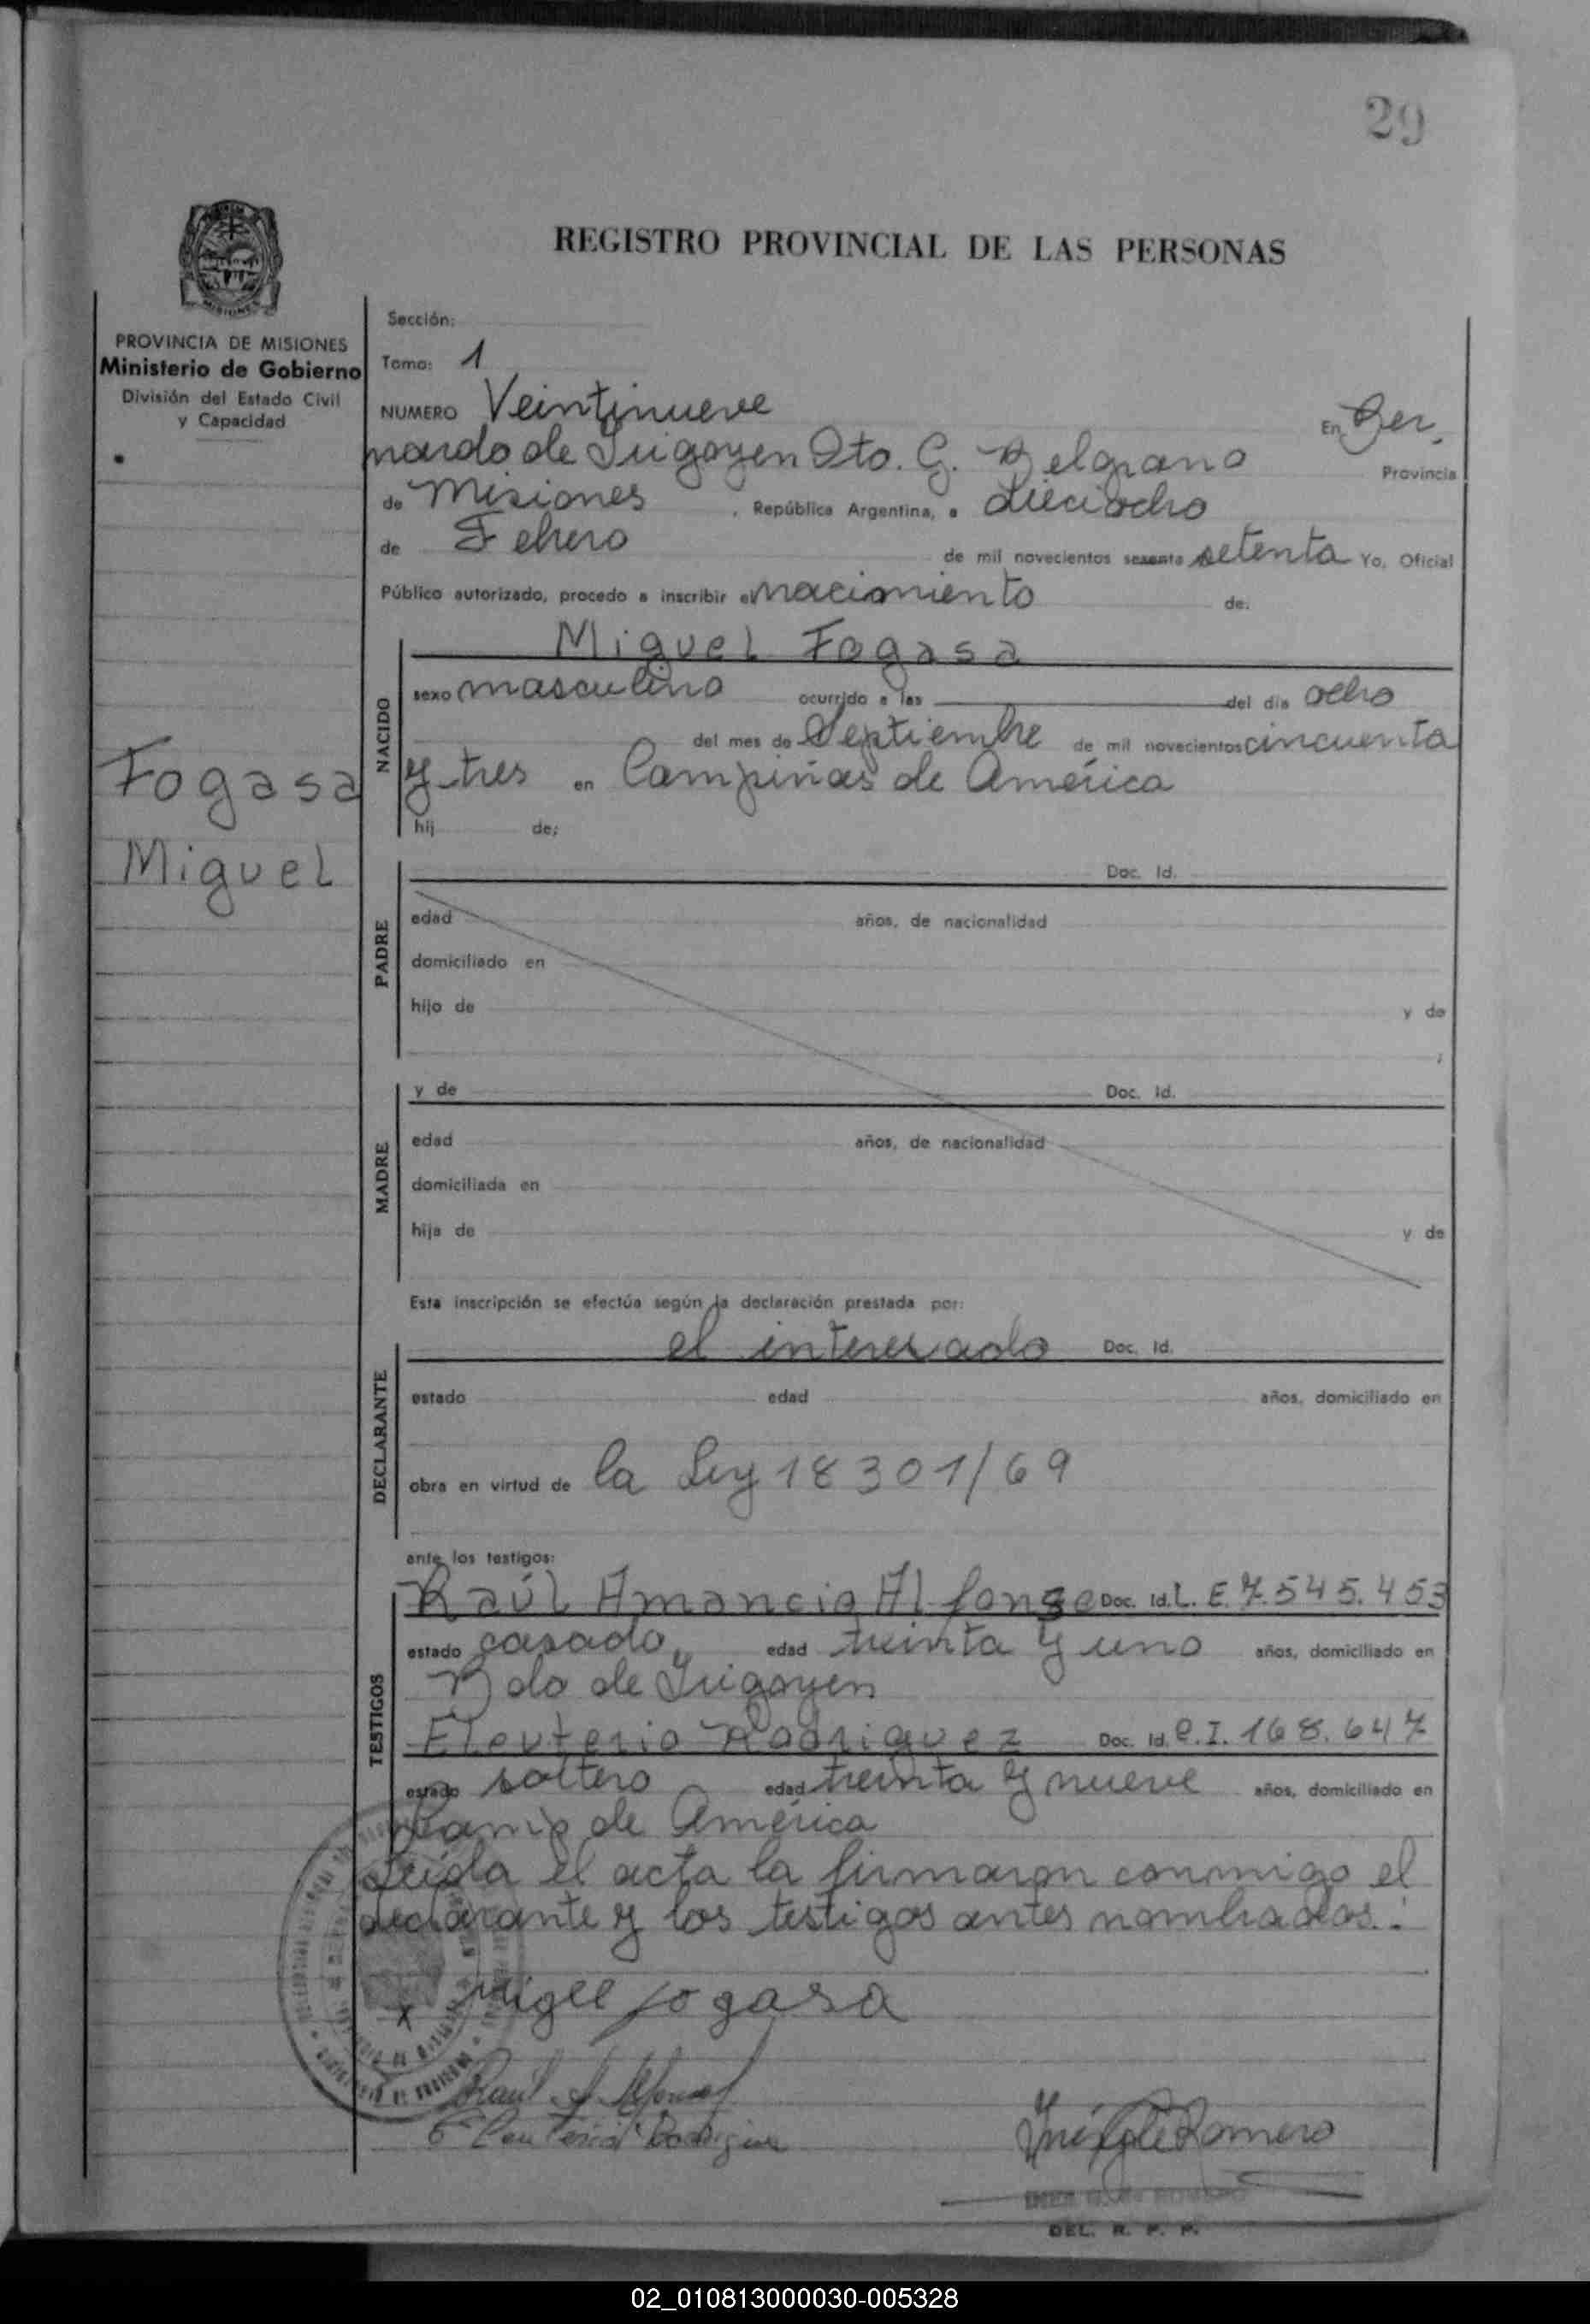 29
REGISTRO PROVINCIAL DE LAS PERSONAS
PROVINCIA DE MISIONES
Ministerio de Gobierno
División del Estado Civil
y Capacidad
Fogasa
Miguel
Sección:
Tomo: 1
NUMERO Veintinueve En Ber,
nardo de Irigoyen Dto. G. Belgrano Provincia
de Misiones, República Argentina, a dieciocho
de Febrero de mil novecientos sesenta setenta Yo, Oficial
Público autorizado, procedo a inscribir el nacimiento de:
NACIDO
Miguel Fogasa
sexo masculino ocurrido a las del día ocho
del mes de Septiembre de mil novecientos cincuenta
y tres en Campiñas de América
hij de;
PADRE
Doc. Id.
edad años, de nacionalidad
domiciliado en
hijo de y de
;
MADRE
y de Doc. Id.
edad años, de nacionalidad
domiciliada en
hija de y de
Esta inscripción se efectúa según la declaración prestada por:
DECLARANTE
el interesado Doc. Id.
estado edad años, domiciliado en
obra en virtud de la Ley 18301/69
ante los testigos:
TESTIGOS
Raúl Amancio Alfonso Doc. Id. L. E. 7.545.453
estado casado, edad treinta y uno años, domiciliado en
Bdo de Irigoyen
Eleuterio Rodriguez Doc. Id. C.I. 168.647
estado soltero edad treinta y nueve años, domiciliado en
de América
Leída el acta la firmaron conmigo el
declarante y los testigos antes nombrados.:
x Migel fogasa
Raúl A. Alfonso
Eleuterio Rodriguez
Romero
DEL. R. P. P.
02_010813000030-005328